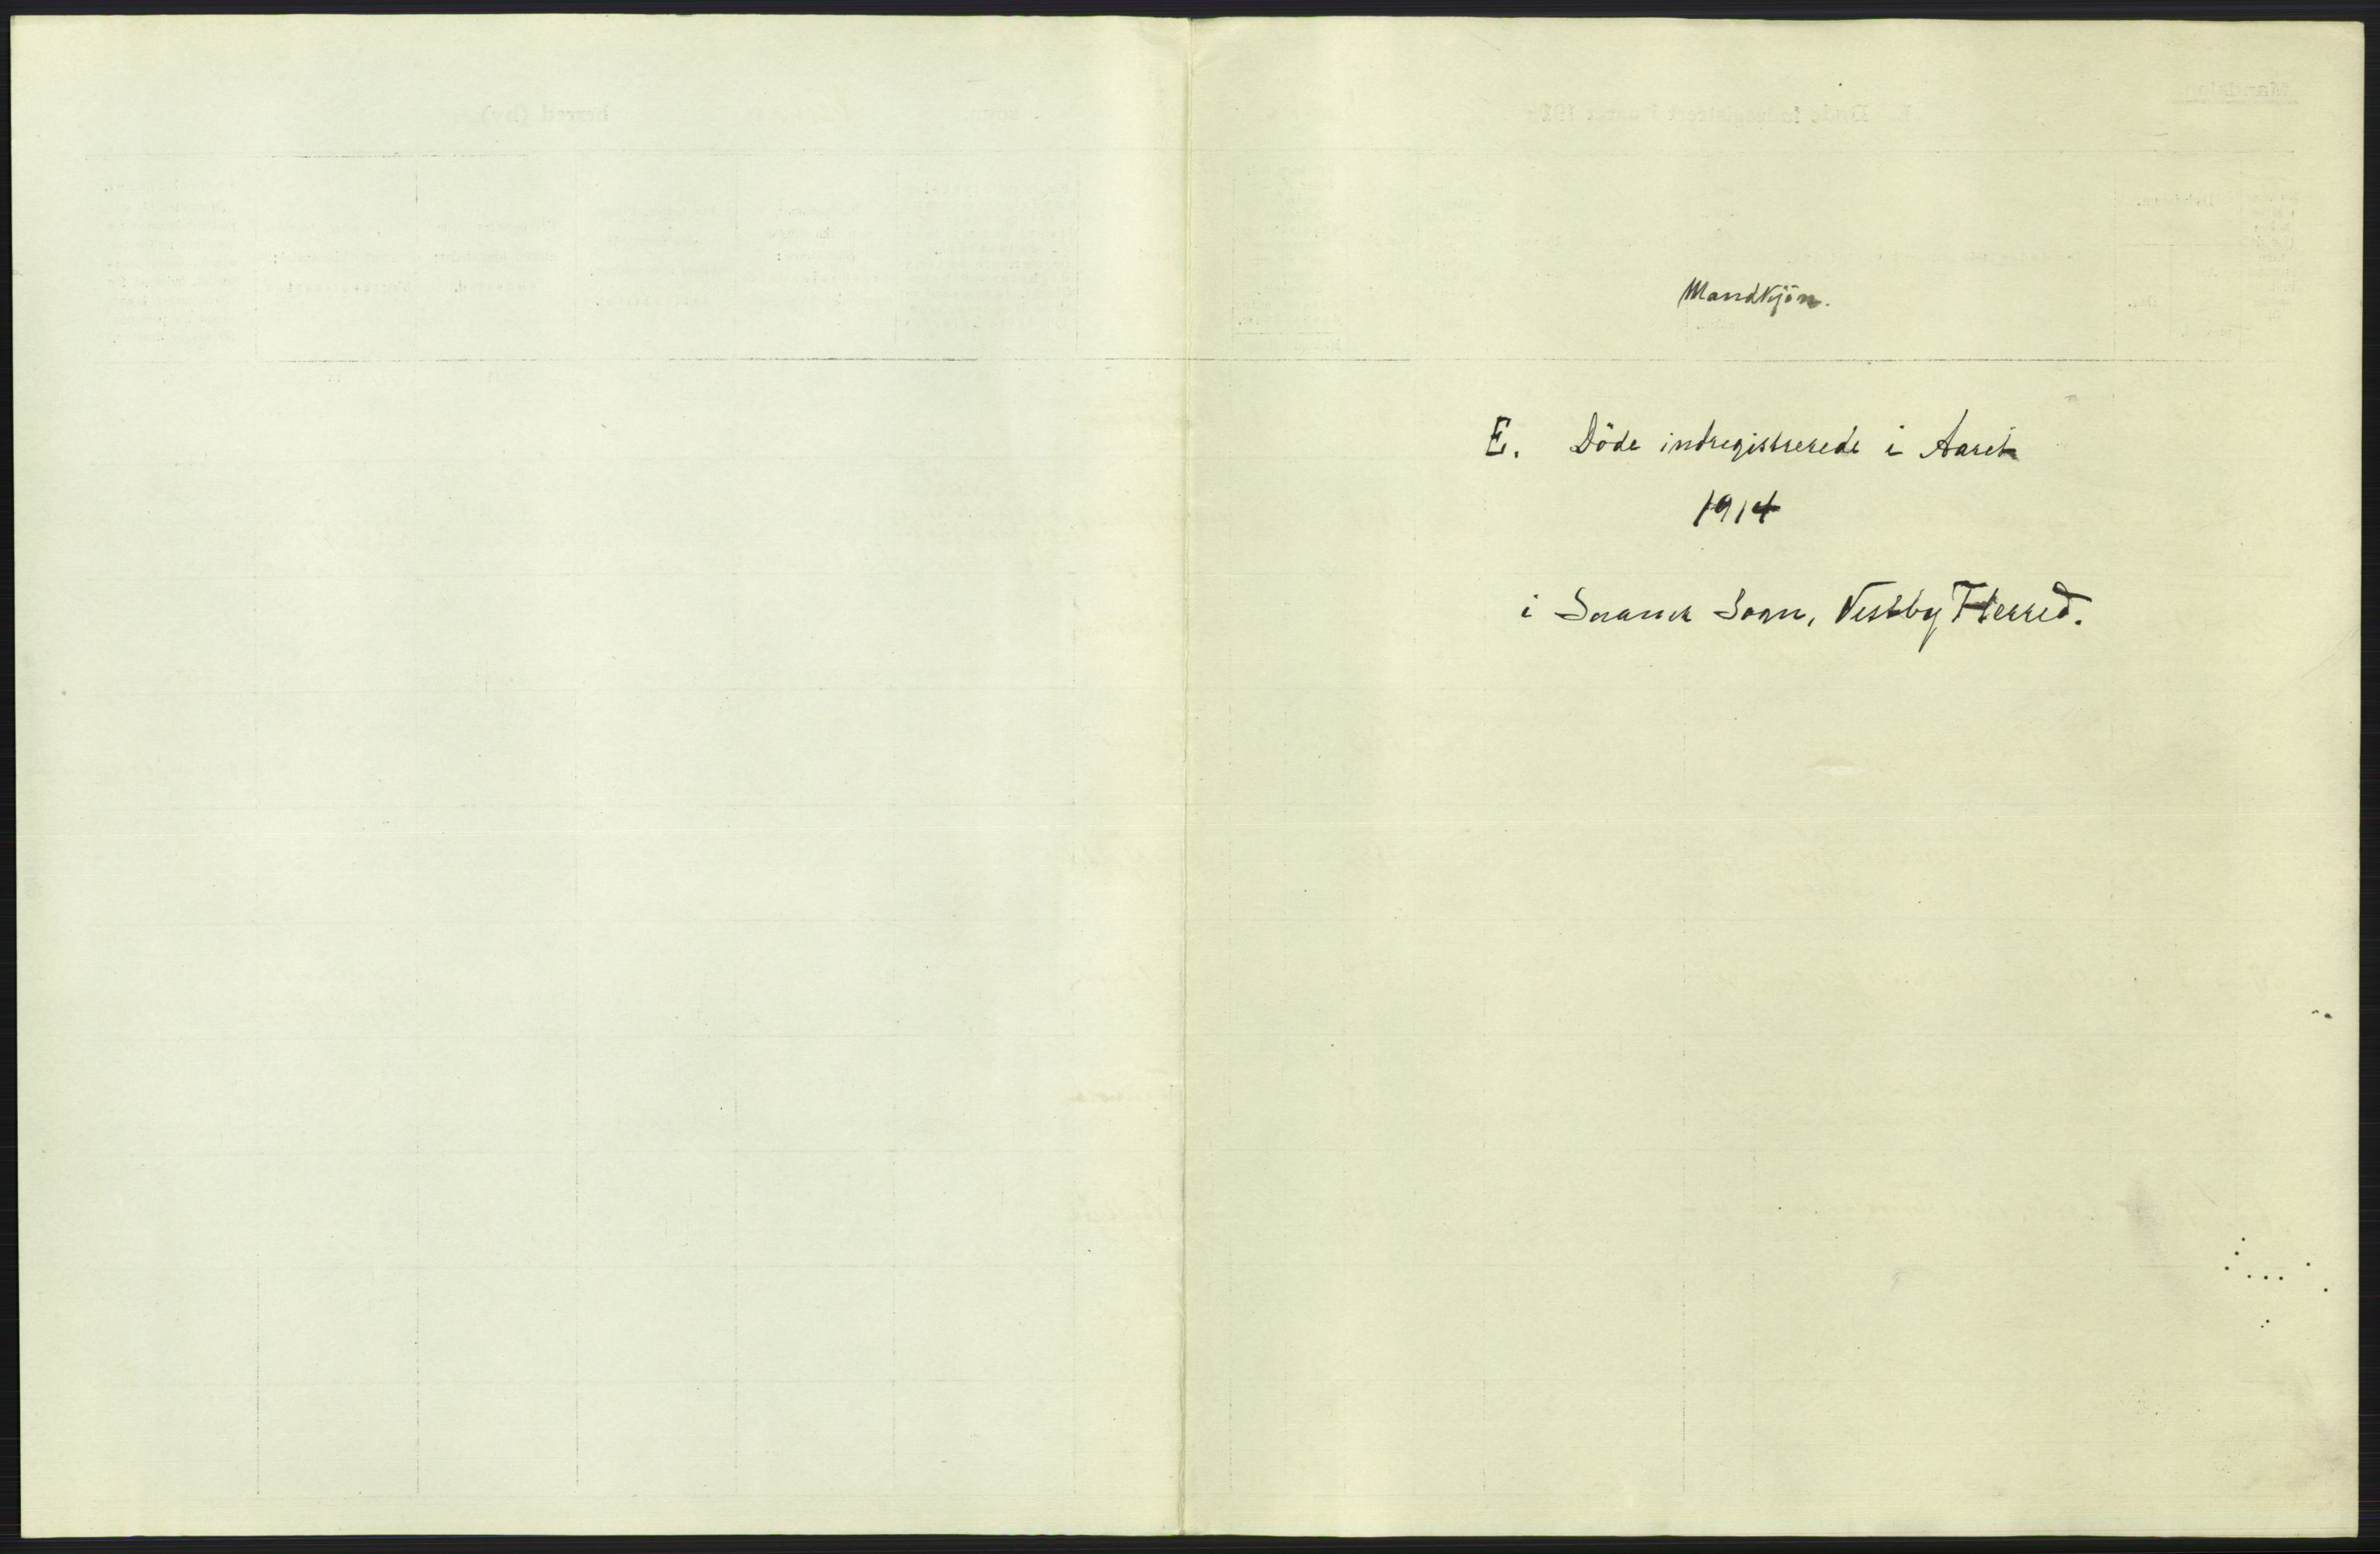 Mandkjön.
E. Döde indregistrerede i Aaret
1914
i Soner Sogn, Vestby Herred.